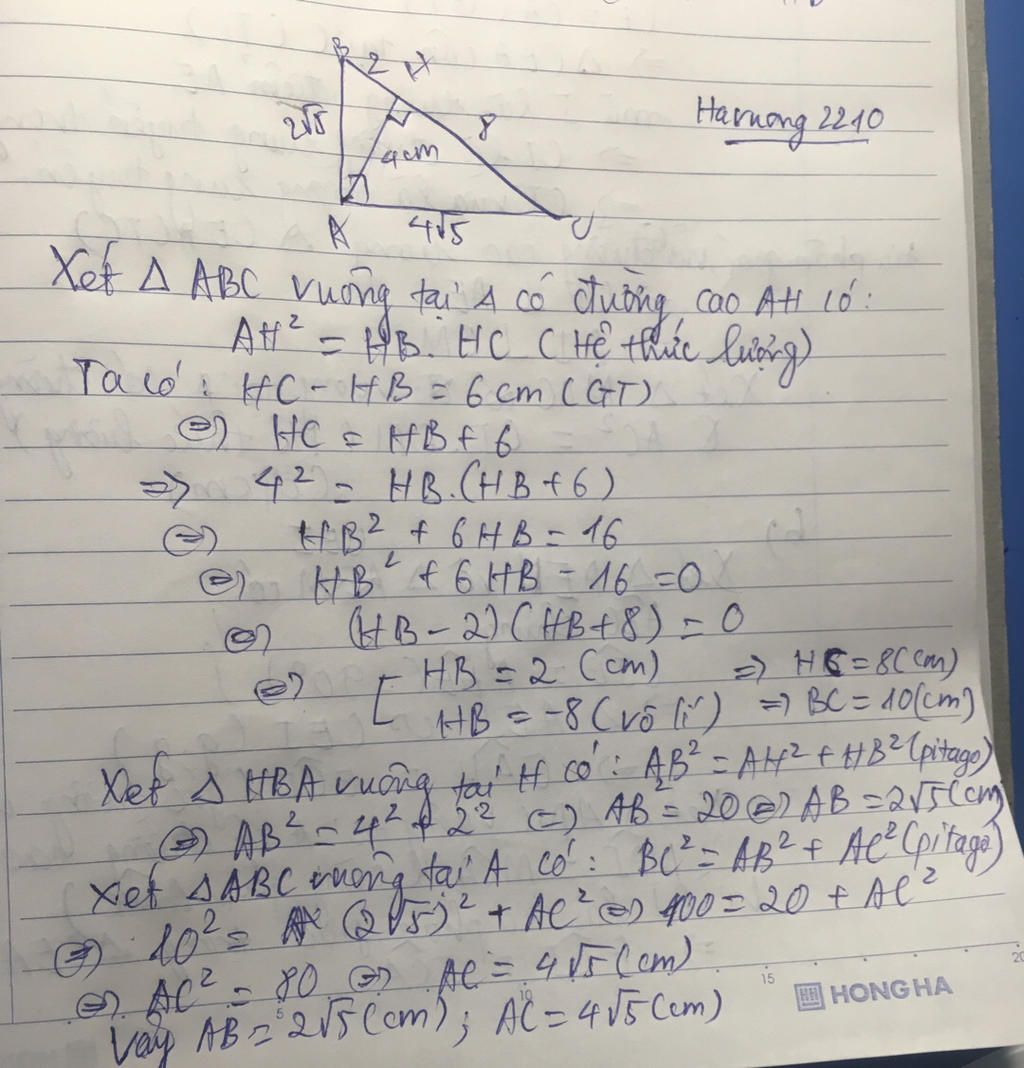 B 2 H
2√5 8
4cm
A 4√5 C
Haruong 2210
Xét △ ABC vuông tại A có đường cao AH có:
AH² = HB. HC (Hệ thức lượng)
Ta có: HC - HB = 6 cm (GT)
⇔ HC = HB + 6
⇒ 4² = HB.(HB+6)
⇔ HB² + 6HB = 16
⇔ HB² + 6 HB - 16 = 0
⇔ (HB - 2) (HB+8) = 0
⇔ [ HB = 2 (cm) ⇒ HC = 8(cm)
HB = -8 (vô lí) ⇒ BC = 10(cm)
Xét △ HBA vuông tại H có: AB² = AH² + HB² (pitago)
⇔ AB² = 4² + 2² ⇔ AB² = 20 ⇔ AB = 2√5 (cm)
Xét △ABC vuông tại A có: BC² = AB² + AC² (pitago)
⇔ 10² = (2√5)² + AC² ⇔ 100 = 20 + AC²
⇔ AC² = 80 ⇔ AC = 4√5 (cm)
Vậy AB = 2√5 (cm); AC = 4√5 (cm)
5 10 15 20
HONG HA